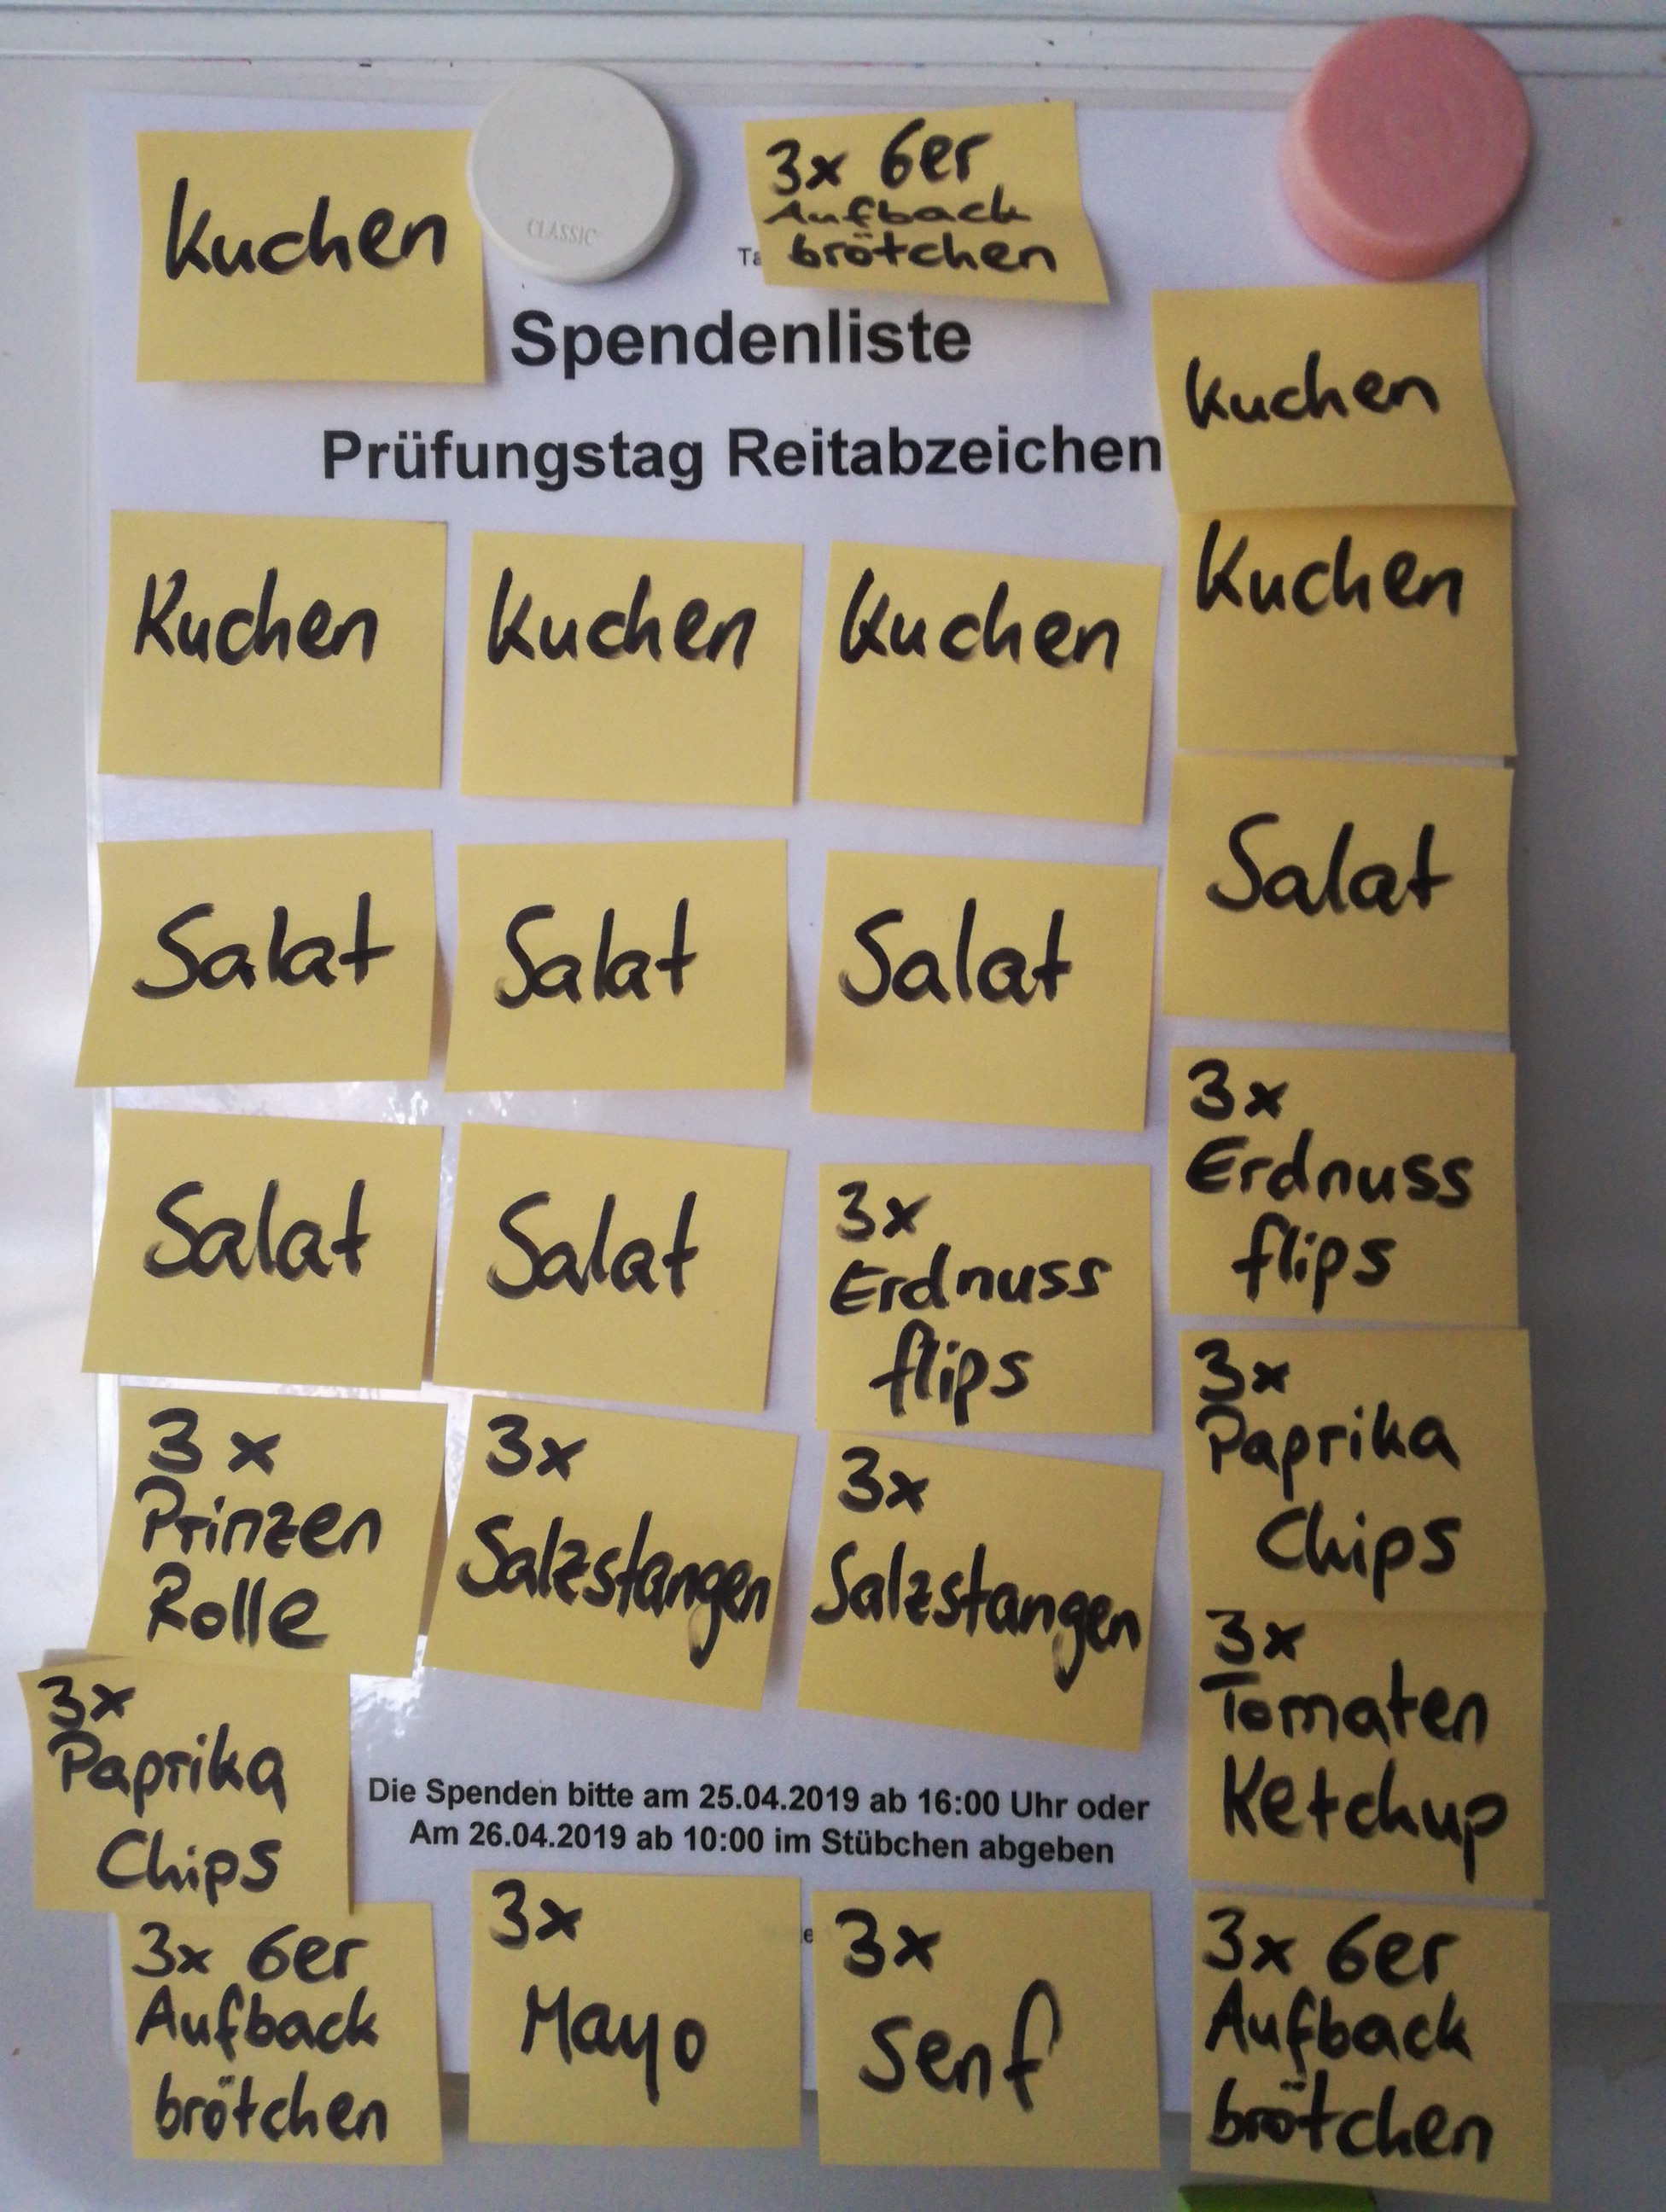 Kuchen
CLASSIC
3x 6er
Aufback
brötchen
Spendenliste
Kuchen
Prüfungstag Reitabzeichen
Kuchen
Kuchen
Kuchen
Kuchen
Salat
Salat
Salat
Salat
3x
Erdnuss
flips
Salat
Salat
3x
Erdnuss
flips
3x
Paprika
Chips
3x
Prinzen
Rolle
3x
Salzstangen
3x
Salzstangen
3x
Tomaten
Ketchup
3x
Paprika
Chips
Die Spenden bitte am 25.04.2019 ab 16:00 Uhr oder
Am 26.04.2019 ab 10:00 im Stübchen abgeben
3x 6er
Aufback
brötchen
3x
Mayo
3x
Senf
3x 6er
Aufback
brötchen